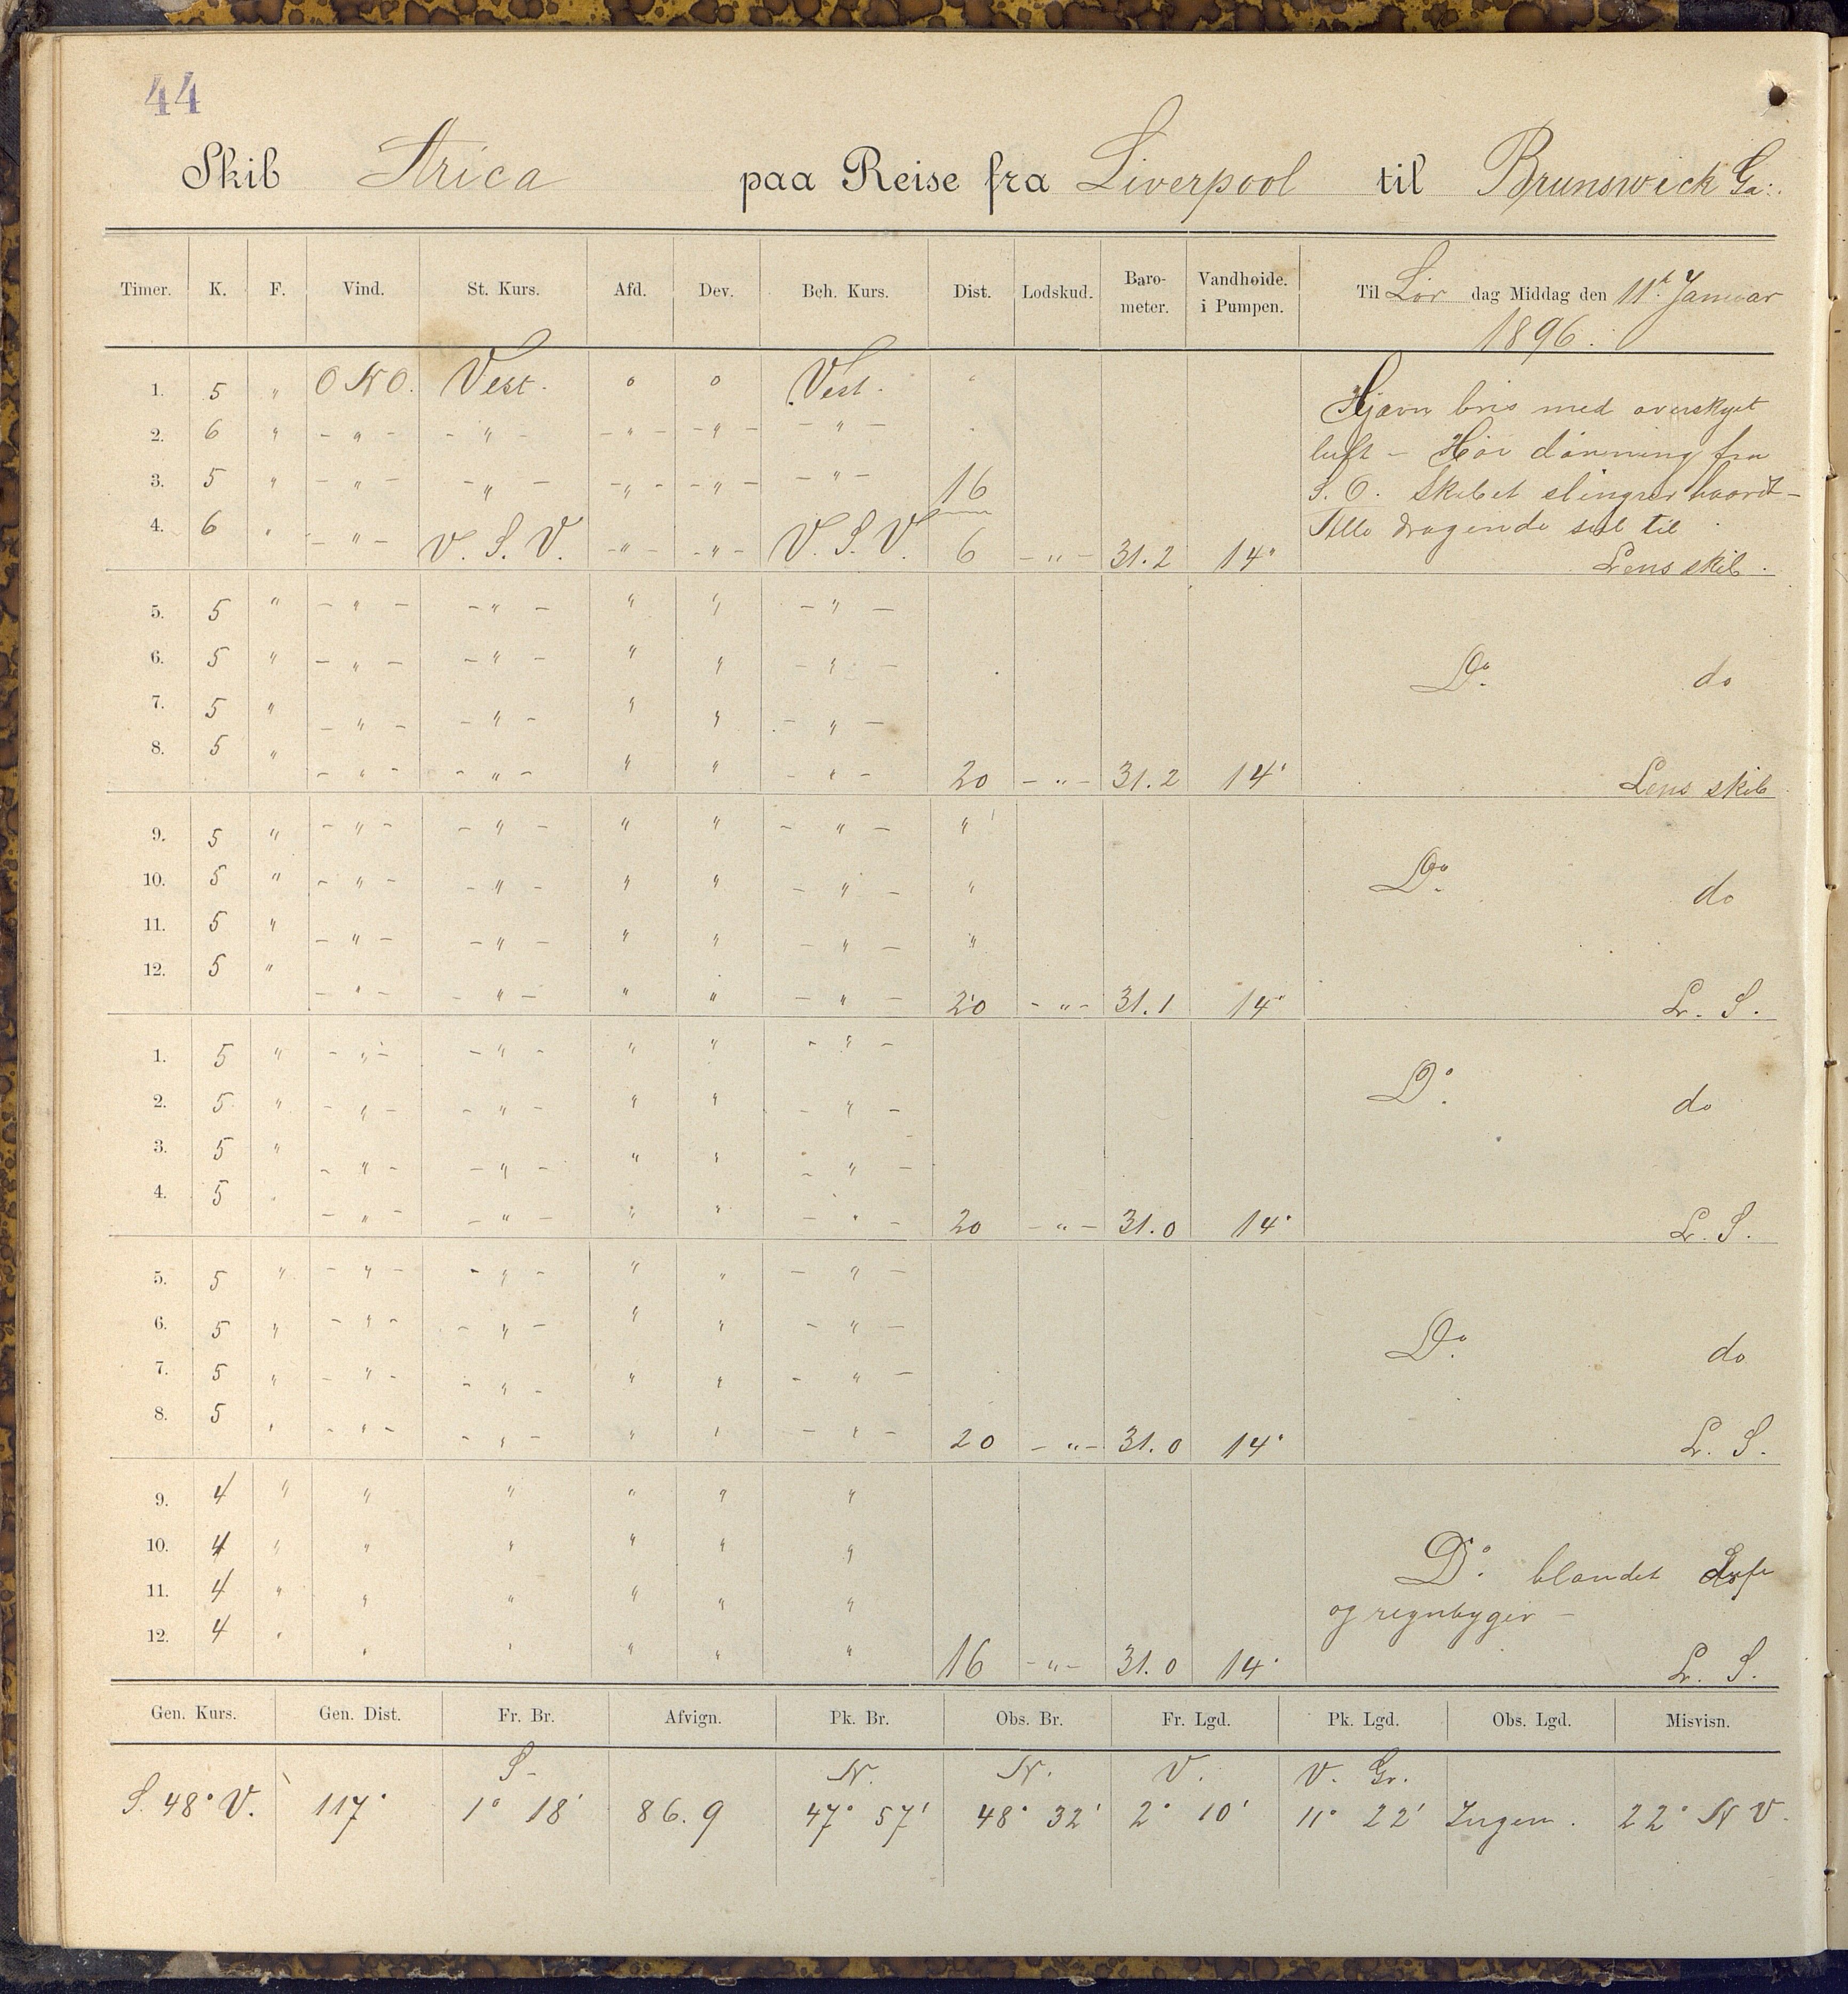 44
Skib Arica paa Reise fra Liverpool til Brunswick Ga:.
Timer. K. F. Vind. St. Kurs. Afd. Dev. Beh. Kurs. Dist. Lodskud. Baro-meter. Vandhøide. i Pumpen. Til Lør dag Middag den 11t Januar
1896.
1. 5 " O N O. Vest. o o Vest. "
Hjævn bris med overskyet
2. 6 " - " - - " - - " - - " - - " -
luft - Høi dønning fra
3. 5 " - " - - " - - " - - " - - " - 16
S. O. Skibet slingrer haardt -
4. 6 " - " - V. S. V. - " - - " - V. S. V. 6 - " - 31.2 14"
Alle dragende seil til
Lens skib.
5. 5 " - " - - " - " " - " -
6. 5 " - " - - " - " " - " - Do do
7. 5 " - " - - " - " " - " -
8. 5 " - " - - " - " " - " - 20 - " - 31.2 14" Lens skib
9. 5 " - " - - " - " " - " - "
10. 5 " - " - - " - " " - " - " Do do
11. 5 " - " - - " - " " - " - "
12. 5 " - " - - " - " " - " - 20 - " - 31.1 14" L. S.
1. 5 " - " - - " - " " - " -
2. 5 " - " - - " - " " - " - Do do
3. 5 " - " - - " - " " - " -
4. 5 " - " - - " - " " - " - 20 - " - 31.0 14" L. S.
5. 5 " - " - - " - " " - " -
6. 5 " - " - - " - " " - " - Do do
7. 5 " - " - - " - " " - " -
8. 5 " - " - - " - " " - " - 20 - " - 31.0 14" L. S.
9. 4 " " " " " "
10. 4 " " " " " " Do blandet
11. 4 " " " " " " og regnbyger -
12. 4 " " " " " " 16 - " - 31.0 14" L. S.
Gen. Kurs. Gen. Dist. Fr. Br. Afvign. Pk. Br. Obs. Br. Fr. Lgd. Pk. Lgd. Obs. Lgd. Misvisn.
S. N. N. V. V. Gr.
S. 48° V. 117' 1° 18' 86.9 47° 57' 48° 32' 2° 10' 11° 22' Ingen. 22° N V.